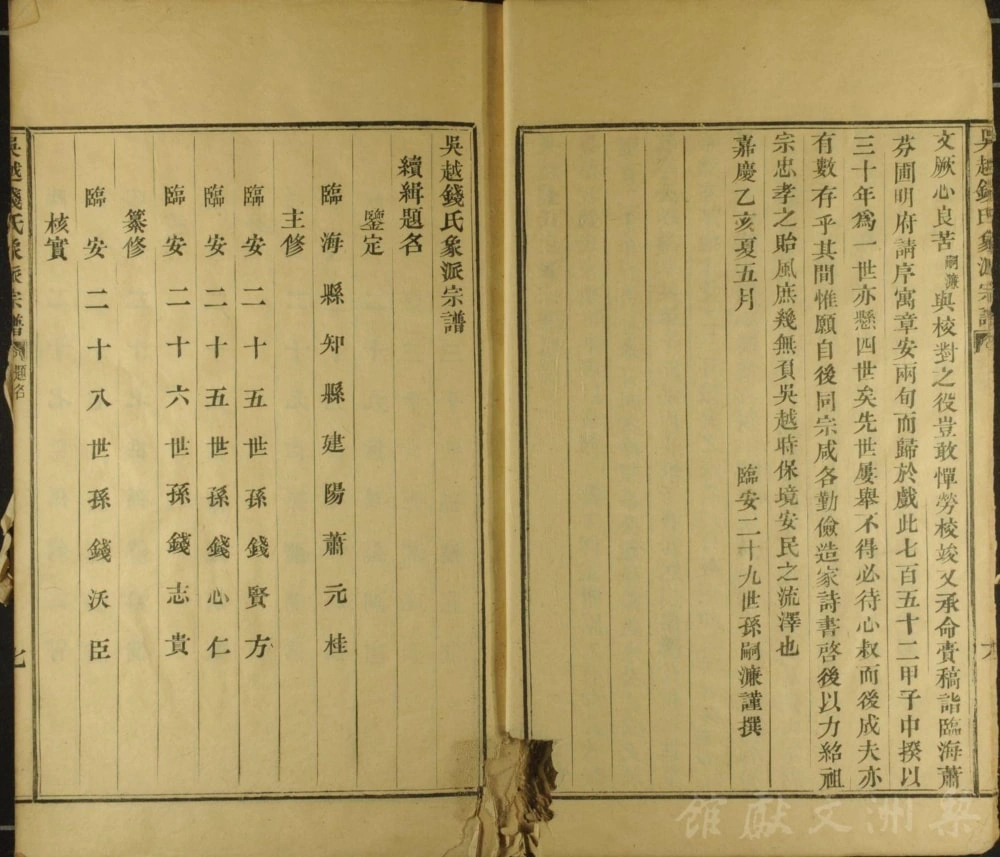 吳越錢氏象派宗譜
文厥心良苦嗣濂與棱對之役豈敢憚勞棱竣又承命賫稿詣臨海蕭
芬圃明府請序寓章安兩旬而歸於戲此七百五十二甲子中揆以
三十年爲一世亦懸四世矣先世屢舉不得必待心叔而後成夫亦
有數存乎其間惟願自後同宗咸各勤儉造家詩書啓後以力紹祖
宗忠孝之貽風庶幾無負吳越時保境安民之流澤也
嘉慶乙亥夏五月
臨安二十九世孫嗣濂謹撰
吳越錢氏象派宗譜
續緝題名
鑒定
臨海縣知縣建陽蕭元桂
主修
臨安二十五世孫錢賢方
臨安二十五世孫錢心仁
臨安二十六世孫錢志貴
纂修
臨安二十八世孫錢沃臣
核實
吳越錢氏象派宗譜
題名
七
梨洲文獻館